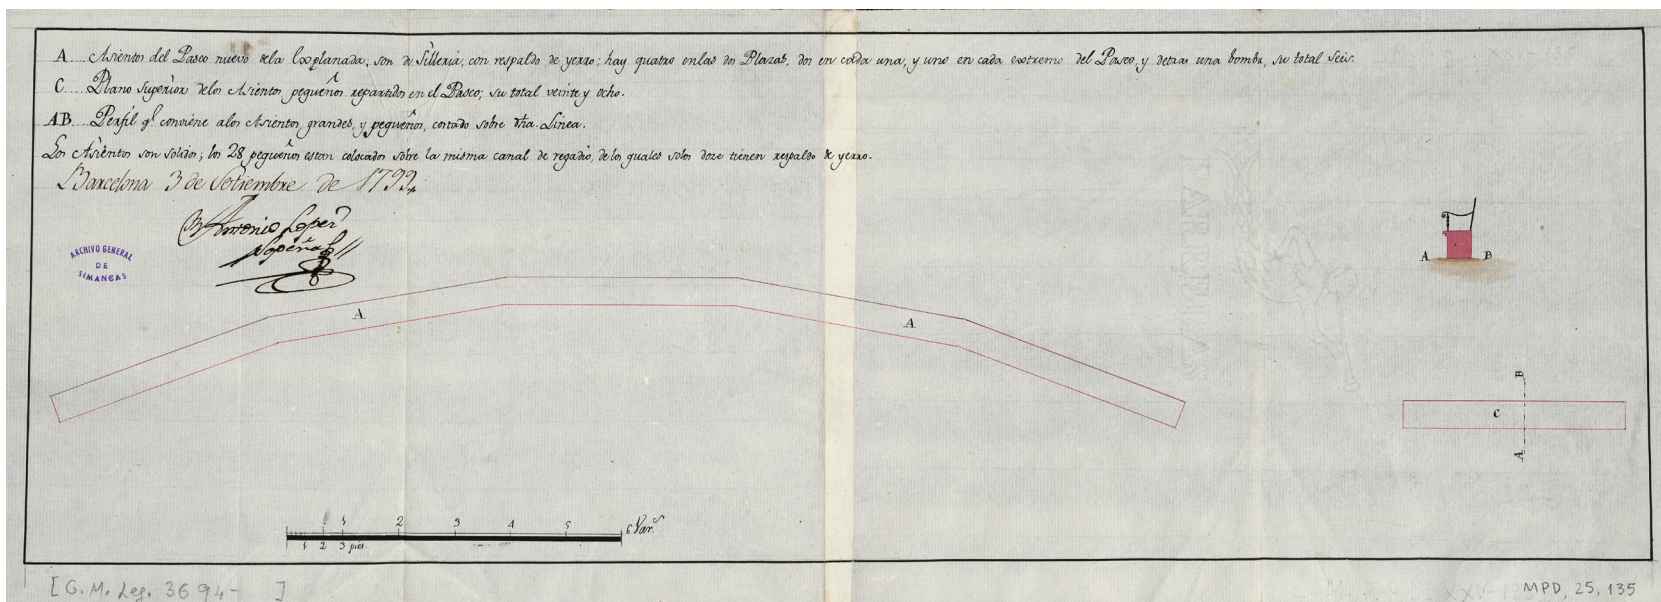 A.... Asientos del Paseo nuevo dela Explanada; son de Silleria, con respaldo de yerro; hay quatro enlas dos Plazas, dos en cada una, y uno en cada extremo del Paseo, y detras una bomba, su total Seis.
C.... Plano Superior delos Asientos pequeños repartidos en el Paseo; su total veinte y ocho.
AB.... Perfil q.e conviene alos Asientos grandes, y pequeños, cortado sobre dha. Linea.
Los Asientos son solidos; los 28 pequeños estan colocados sobre la misma canal de regadio, de los quales solos doze tienen respaldo de yerro.
Barcelona 3 de Setiembre de 1799
Antonio Lopez
Sopeña
ARCHIVO GENERAL
DE
SIMANCAS
A B
A A
B
C
A
1 2 3 4 5 6 Var.s
1 2 3 pies
[G.M. Leg. 3694- ]
MPD, 25, 135